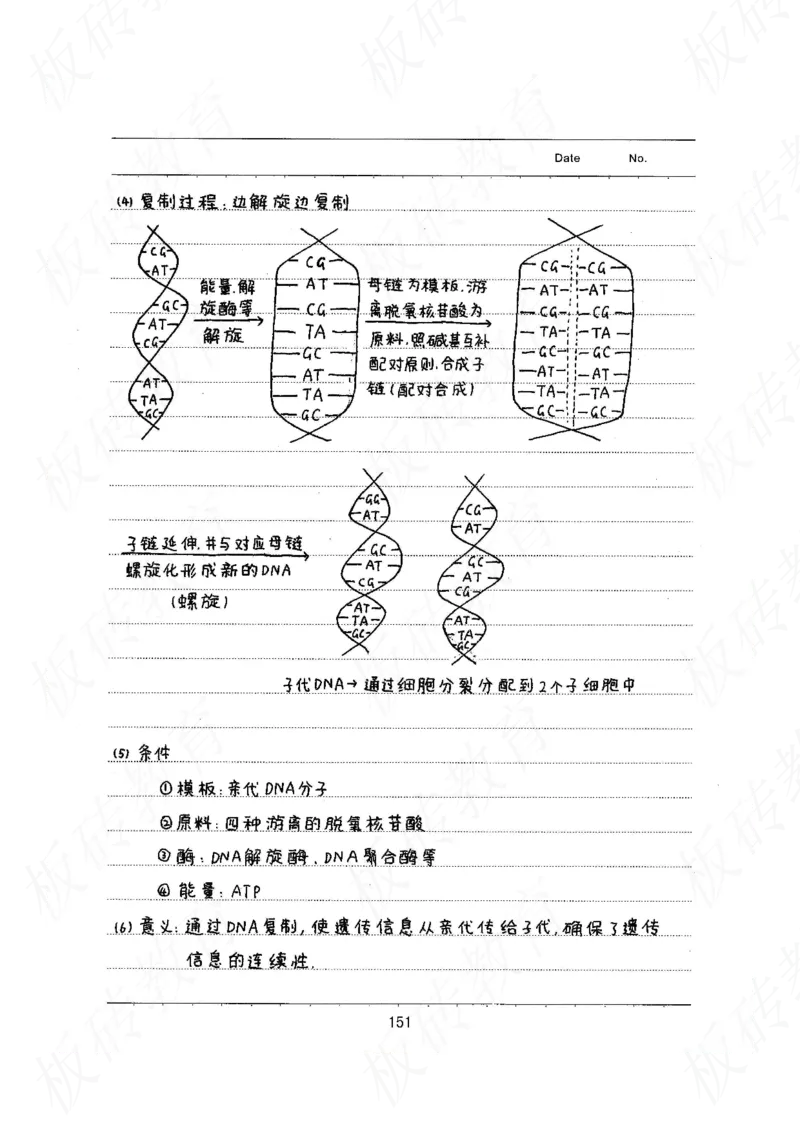 Date No.
(4) 复制过程:边解旋边复制
CG
AT
GC
AT
CG
AT
TA
GC
能量.解
旋酶等
解旋
CG
AT
CG
TA
GC
AT
TA
GC
母链为模板.游
离脱氧核苷酸为
原料.照碱基互补
配对原则.合成子
链(配对合成)
CG CG
AT AT
CG CG
TA TA
GC GC
AT AT
TA TA
GC GC
子链延伸.并与对应母链
螺旋化形成新的DNA
(螺旋)
GG
AT
GC
AT
CG
AT
TA
GC
CG
AT
GC
AT
CG
AT
TA
GC
子代DNA→通过细胞分裂分配到2个子细胞中
(5) 条件
①模板:亲代DNA分子
②原料:四种游离的脱氧核苷酸
③酶:DNA解旋酶、DNA聚合酶等
④能量:ATP
(6) 意义:通过DNA复制,使遗传信息从亲代传给子代,确保了遗传
信息的连续性.
151
板砖教育